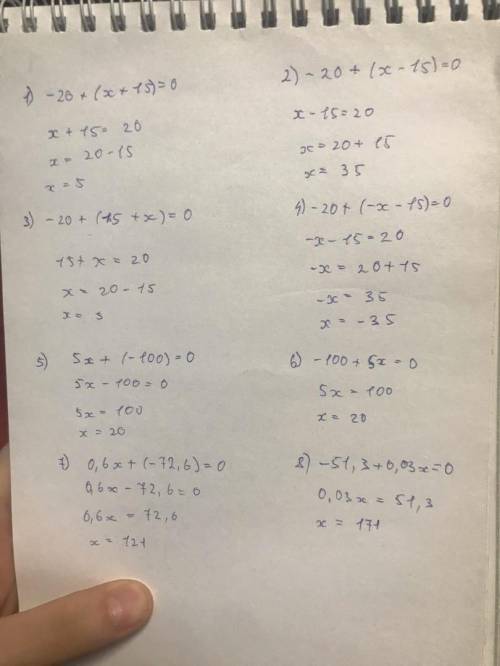 1) -20 + (x + 15) = 0
x + 15 = 20
x = 20 - 15
x = 5
2) -20 + (x - 15) = 0
x - 15 = 20
x = 20 + 15
x = 35
3) -20 + (15 + x) = 0
15 + x = 20
x = 20 - 15
x = 5
4) -20 + (-x - 15) = 0
-x - 15 = 20
-x = 20 + 15
-x = 35
x = -35
5) 5x + (-100) = 0
5x - 100 = 0
5x = 100
x = 20
6) -100 + 5x = 0
5x = 100
x = 20
7) 0,6x + (-72,6) = 0
0,6x - 72,6 = 0
0,6x = 72,6
x = 121
8) -51,3 + 0,03x = 0
0,03x = 51,3
x = 171